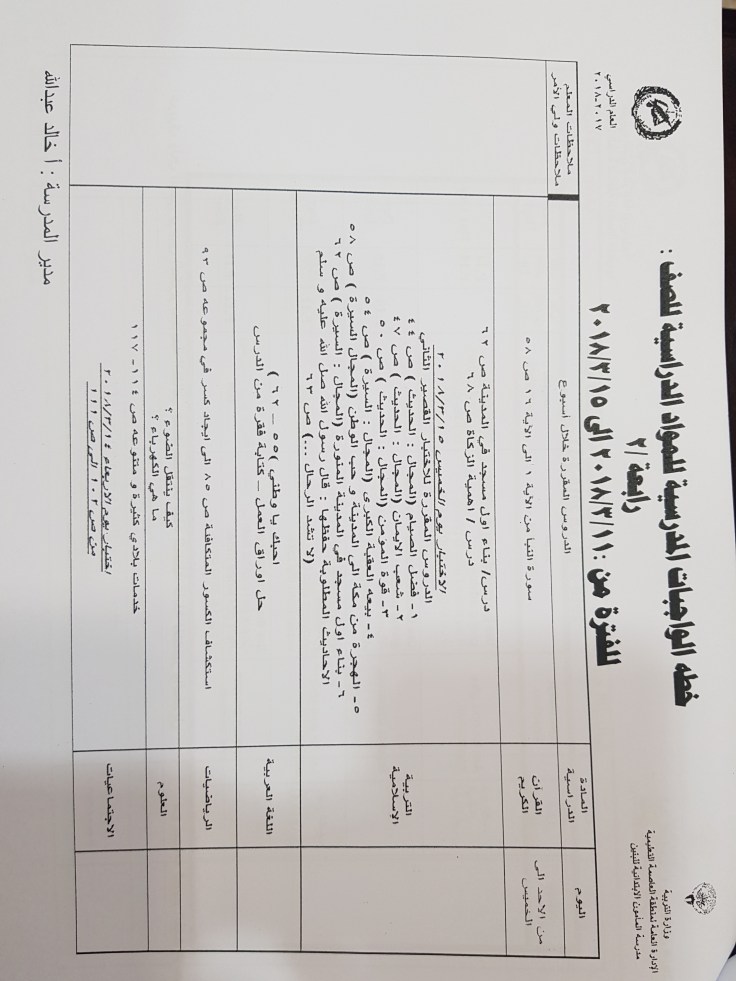 وزارة التربية
الإدارة العامة لمنطقة العاصمة التعليمية
مدرسة المأمون الابتدائية للبنين
العام الدراسي
٢٠١٧-٢٠١٨
خطه الواجبات المدرسية للمواد الدراسية للصف :
رابعة/ ٢
للفترة من :٢٠١٨/٣/١١ الى ٢٠١٨/٣/١٥
اليوم
المادة الدراسية
الدروس المقررة خلال أسبوع
ملاحظات المعلم
ملاحظات ولي الأمر
من الاحد الى الخميس
القرآن الكريم
سورة النبا من الاية ١ الى الاية ١٦ ص ٥٨
التربية الإسلامية
درس/ بناء اول مسجد في المدينة ص ٦٢
درس / اهمية الزكاة ص ٦٨
الاختبار يوم الخميس ٢٠١٨/٣/١٥
الدروس المقررة للاختبار القصير الثاني
١- فضل الصيام (المجال : الحديث ) ص ٤٤
٢- شعب الايمان (المجال : الحديث ) ص ٤٧
٣- قوة المومن (المجال : الحديث ) ص ٥٠
٤- بيعه العقبة الكبرى (المجال : السيرة ) ص ٥٤
٥- الهجرة من مكة الى المدينة و حب الوطن (المجال السيرة ) ص ٥٨
٦- بناء اول مسجد في المدينة المنورة (المجال : السيرة ) ص ٦٢
الاحاديث المطلوبة حفظها : قال رسول الله صل الله عليه و سلم
(لا تشد الرحال ...) ص ٦٣
اللغة العربية
احبك يا وطني )٥٥ – ٦٢ )
حل اوراق العمل . كتابة فقرة من الدرس
الرياضيات
استكشاف الكسور المتكافئة ص ٨٥ الى ايجاد كسر في مجموعه ص ٩٣
العلوم
كيف ينتقل الضوء ؟
ما هي الكهرباء ؟
الاجتماعيات
خدمات بلادي كثيرة و متنوعه ص ١١٤- ١١٧
اختبار يوم الاربعاء ٢٠١٨/٣/١٤
من ص ١٠٢ الى ص ١١١
مدير المدرسة : أ خالد عبدالله